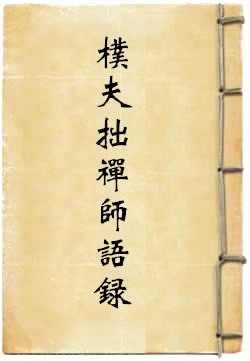 樸夫拙禪師語録